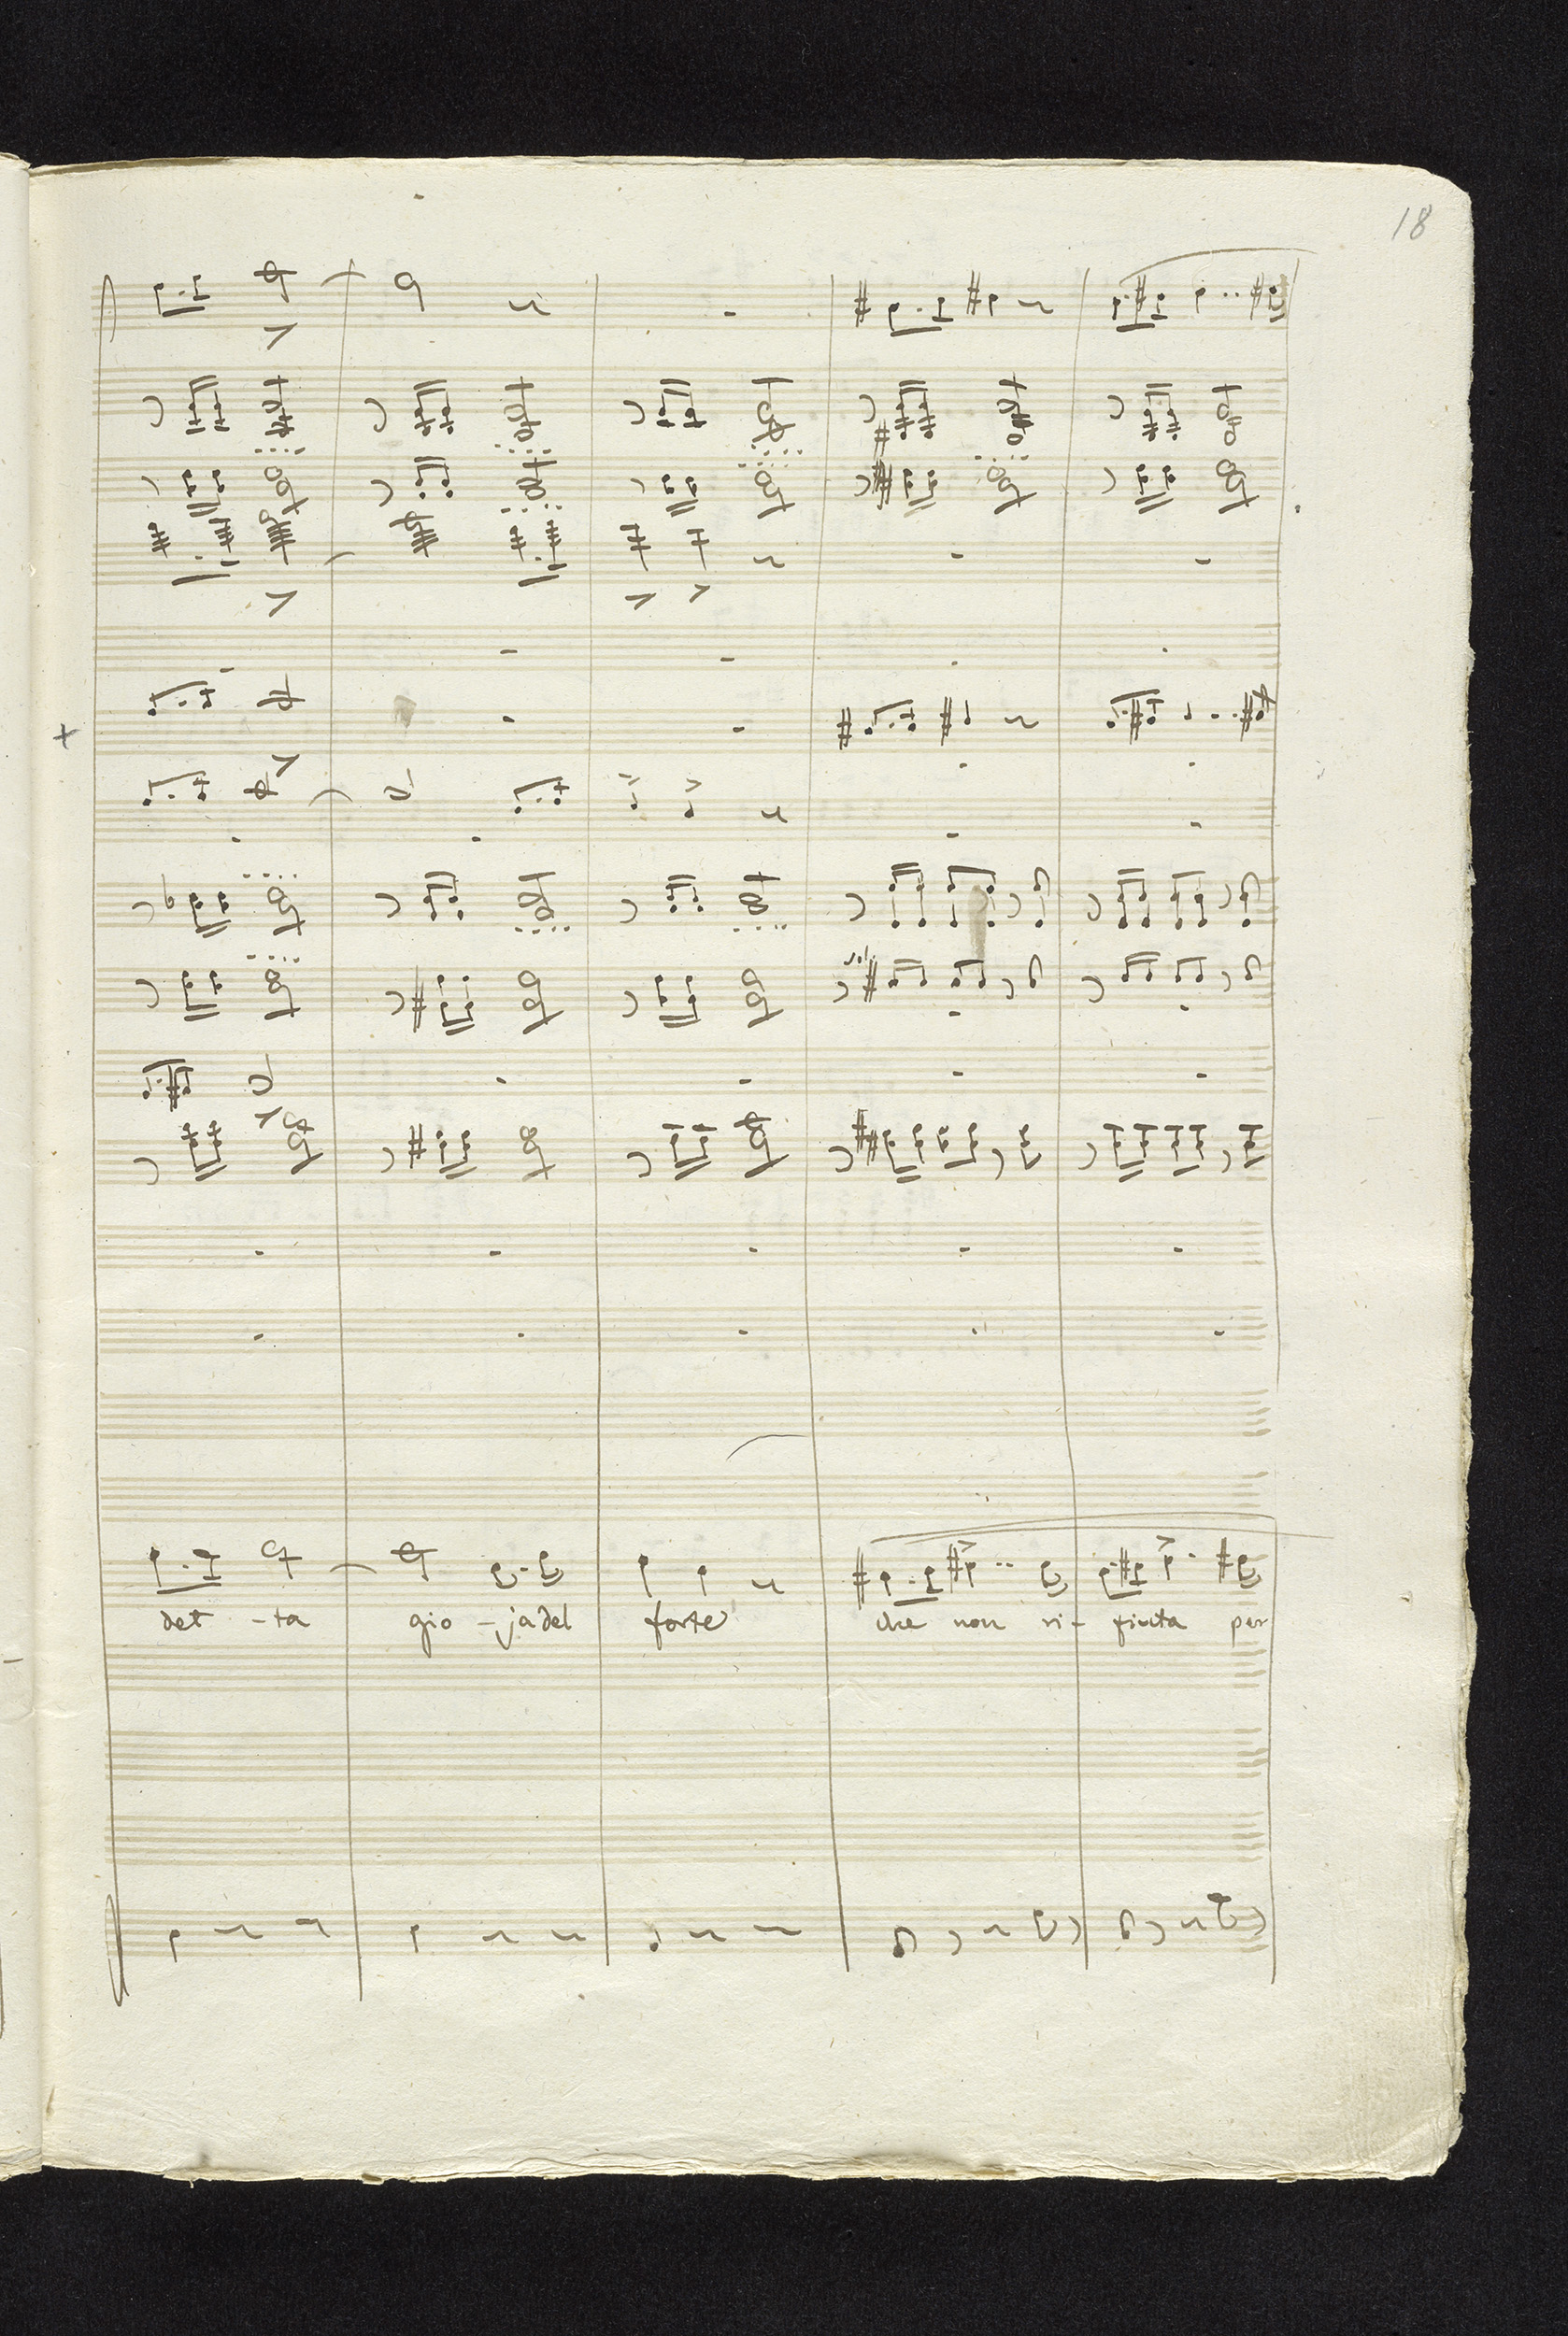 18
det - ta gio - ja del forte che non ri - fiuta per